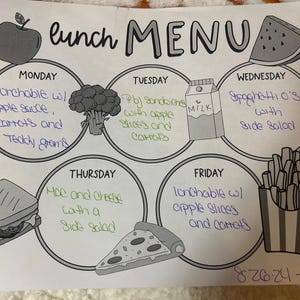 lunch MENU
MONDAY
lunchable w/
apple sauce,
carrots and
Teddy grams
TUESDAY
Pbj sandwiches
with apple
slices and
carrots
MILK
WEDNESDAY
Spaghetti O's
with
side salad
THURSDAY
Mac and cheese
with a
side salad
FRIDAY
lunchable w/
apple slices
and carrots
8-26-24 -